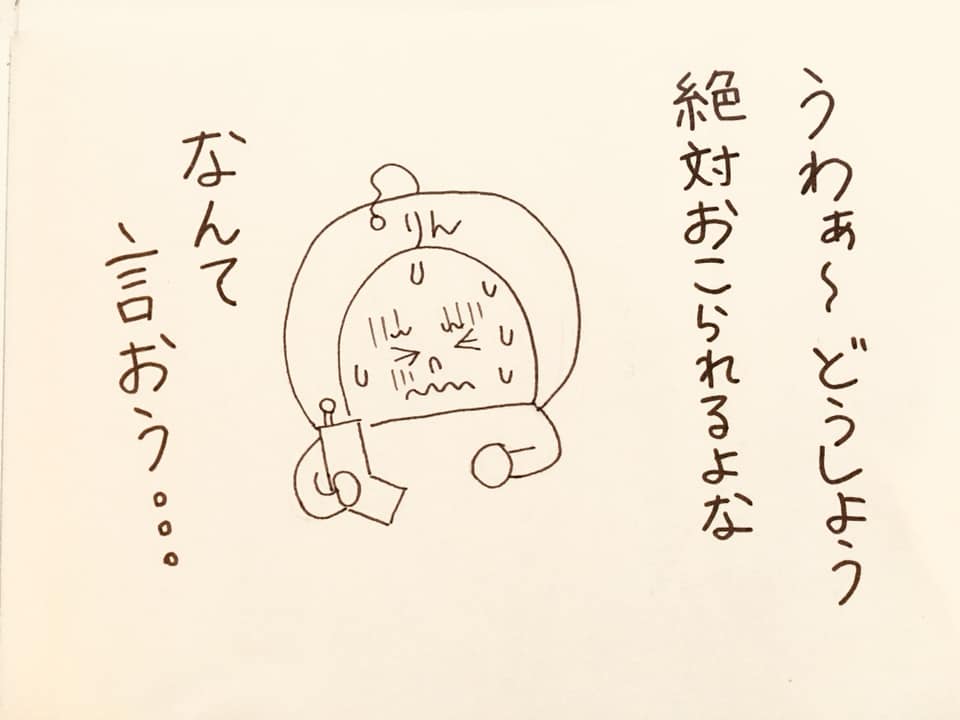 うわぁ〜どうしよう
絶対おこられるよな
りん
なんて
言おう...